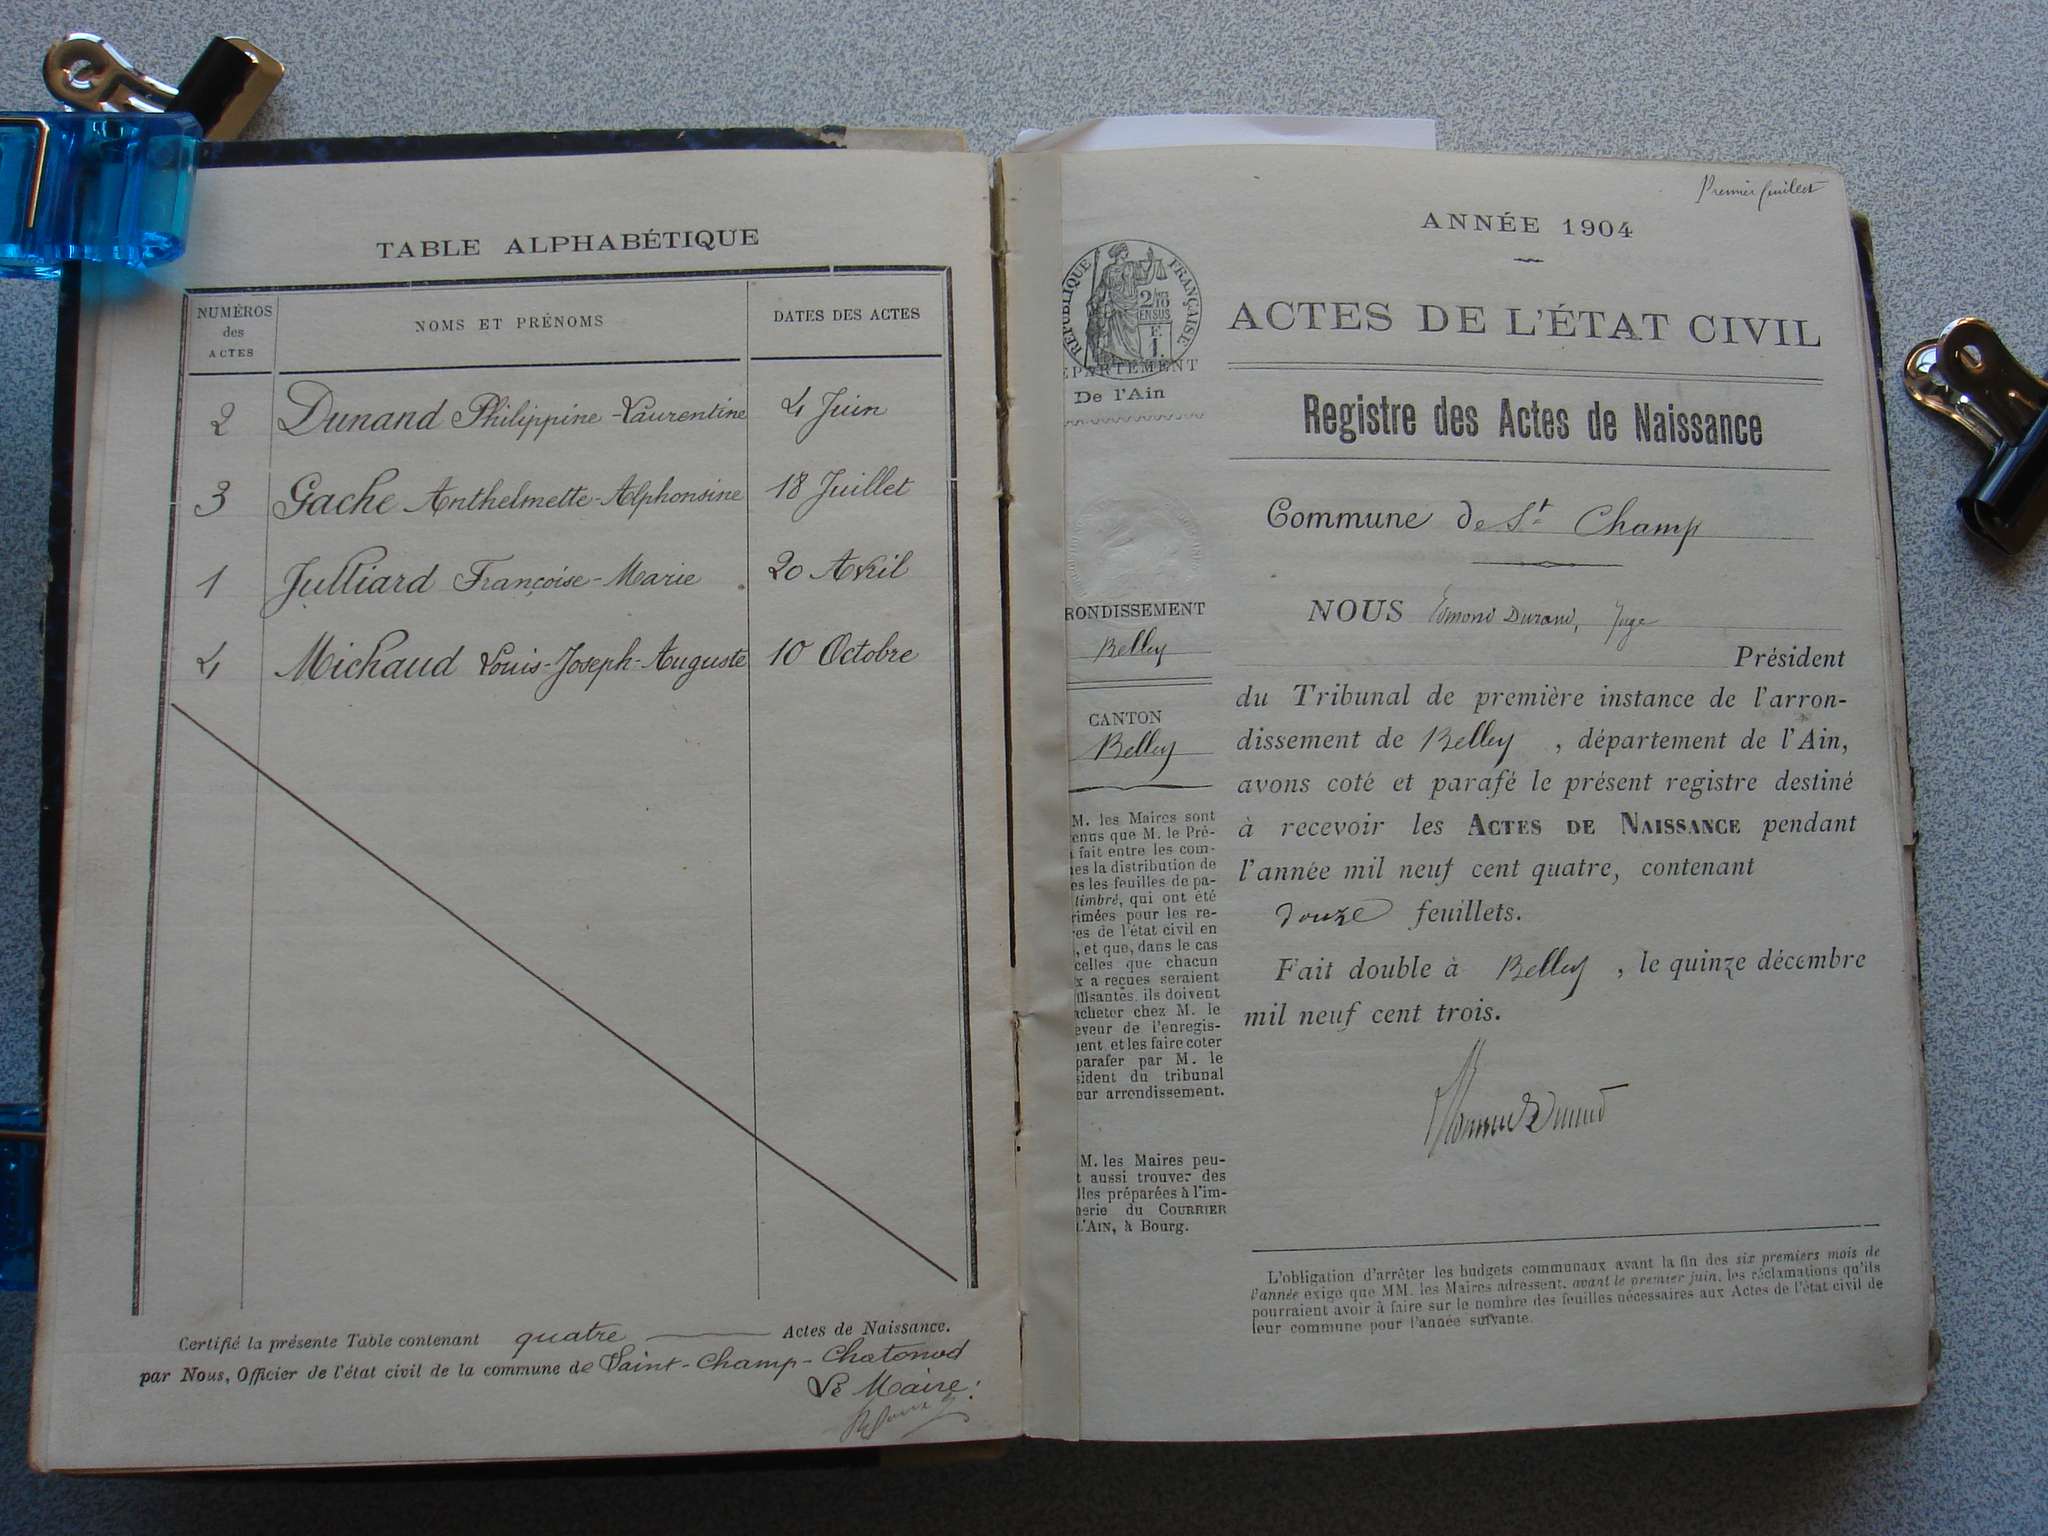 TABLE ALPHABÉTIQUE
NUMÉROS des ACTES NOMS ET PRÉNOMS DATES DES ACTES
2 Dunand Philippine-Laurentine 4 Juin
3 Gache Anthelmette-Alphonsine 18 Juillet
1 Julliard Françoise-Marie 20 Avril
4 Michaud Louis-Joseph-Auguste 10 Octobre
Certifié la présente Table contenant quatre Actes de Naissance.
par Nous, Officier de l'état civil de la commune de Saint-Champ-Chatonod
Le Maire:
Premier feuillet
ANNÉE 1904
RÉPUBLIQUE FRANÇAISE
ACTES DE L'ÉTAT CIVIL
ÉPARTEMENT
De l'Ain
Registre des Actes de Naissance
Commune de St Champ
RONDISSEMENT
Belley
CANTON
Belley
M. les Maires sont
enus que M. le Pré-
fait entre les com-
es la distribution de
es les feuilles de pa-
timbré, qui ont été
rimées pour les re-
res de l'état civil en
, et que, dans le cas
celles que chacun
x a reçues seraient
ffisantes, ils doivent
acheter chez M. le
eveur de l'enregis-
ent, et les faire coter
parafer par M. le
sident du tribunal
eur arrondissement.
M. les Maires peu-
t aussi trouver des
lles préparées à l'im-
erie du COURRIER
L'AIN, à Bourg.
NOUS Edmond Durand, Juge
Président
du Tribunal de première instance de l'arron-
dissement de Belley, département de l'Ain,
avons coté et parafé le présent registre destiné
à recevoir les ACTES DE NAISSANCE pendant
l'année mil neuf cent quatre, contenant
douze feuillets.
Fait double à Belley, le quinze décembre
mil neuf cent trois.
L'obligation d'arrêter les budgets communaux avant la fin des six premiers mois de
l'année exige que MM. les Maires adressent, avant le premier juin, les réclamations qu'ils
pourraient avoir à faire sur le nombre des feuilles nécessaires aux Actes de l'état civil de
leur commune pour l'année suivante.